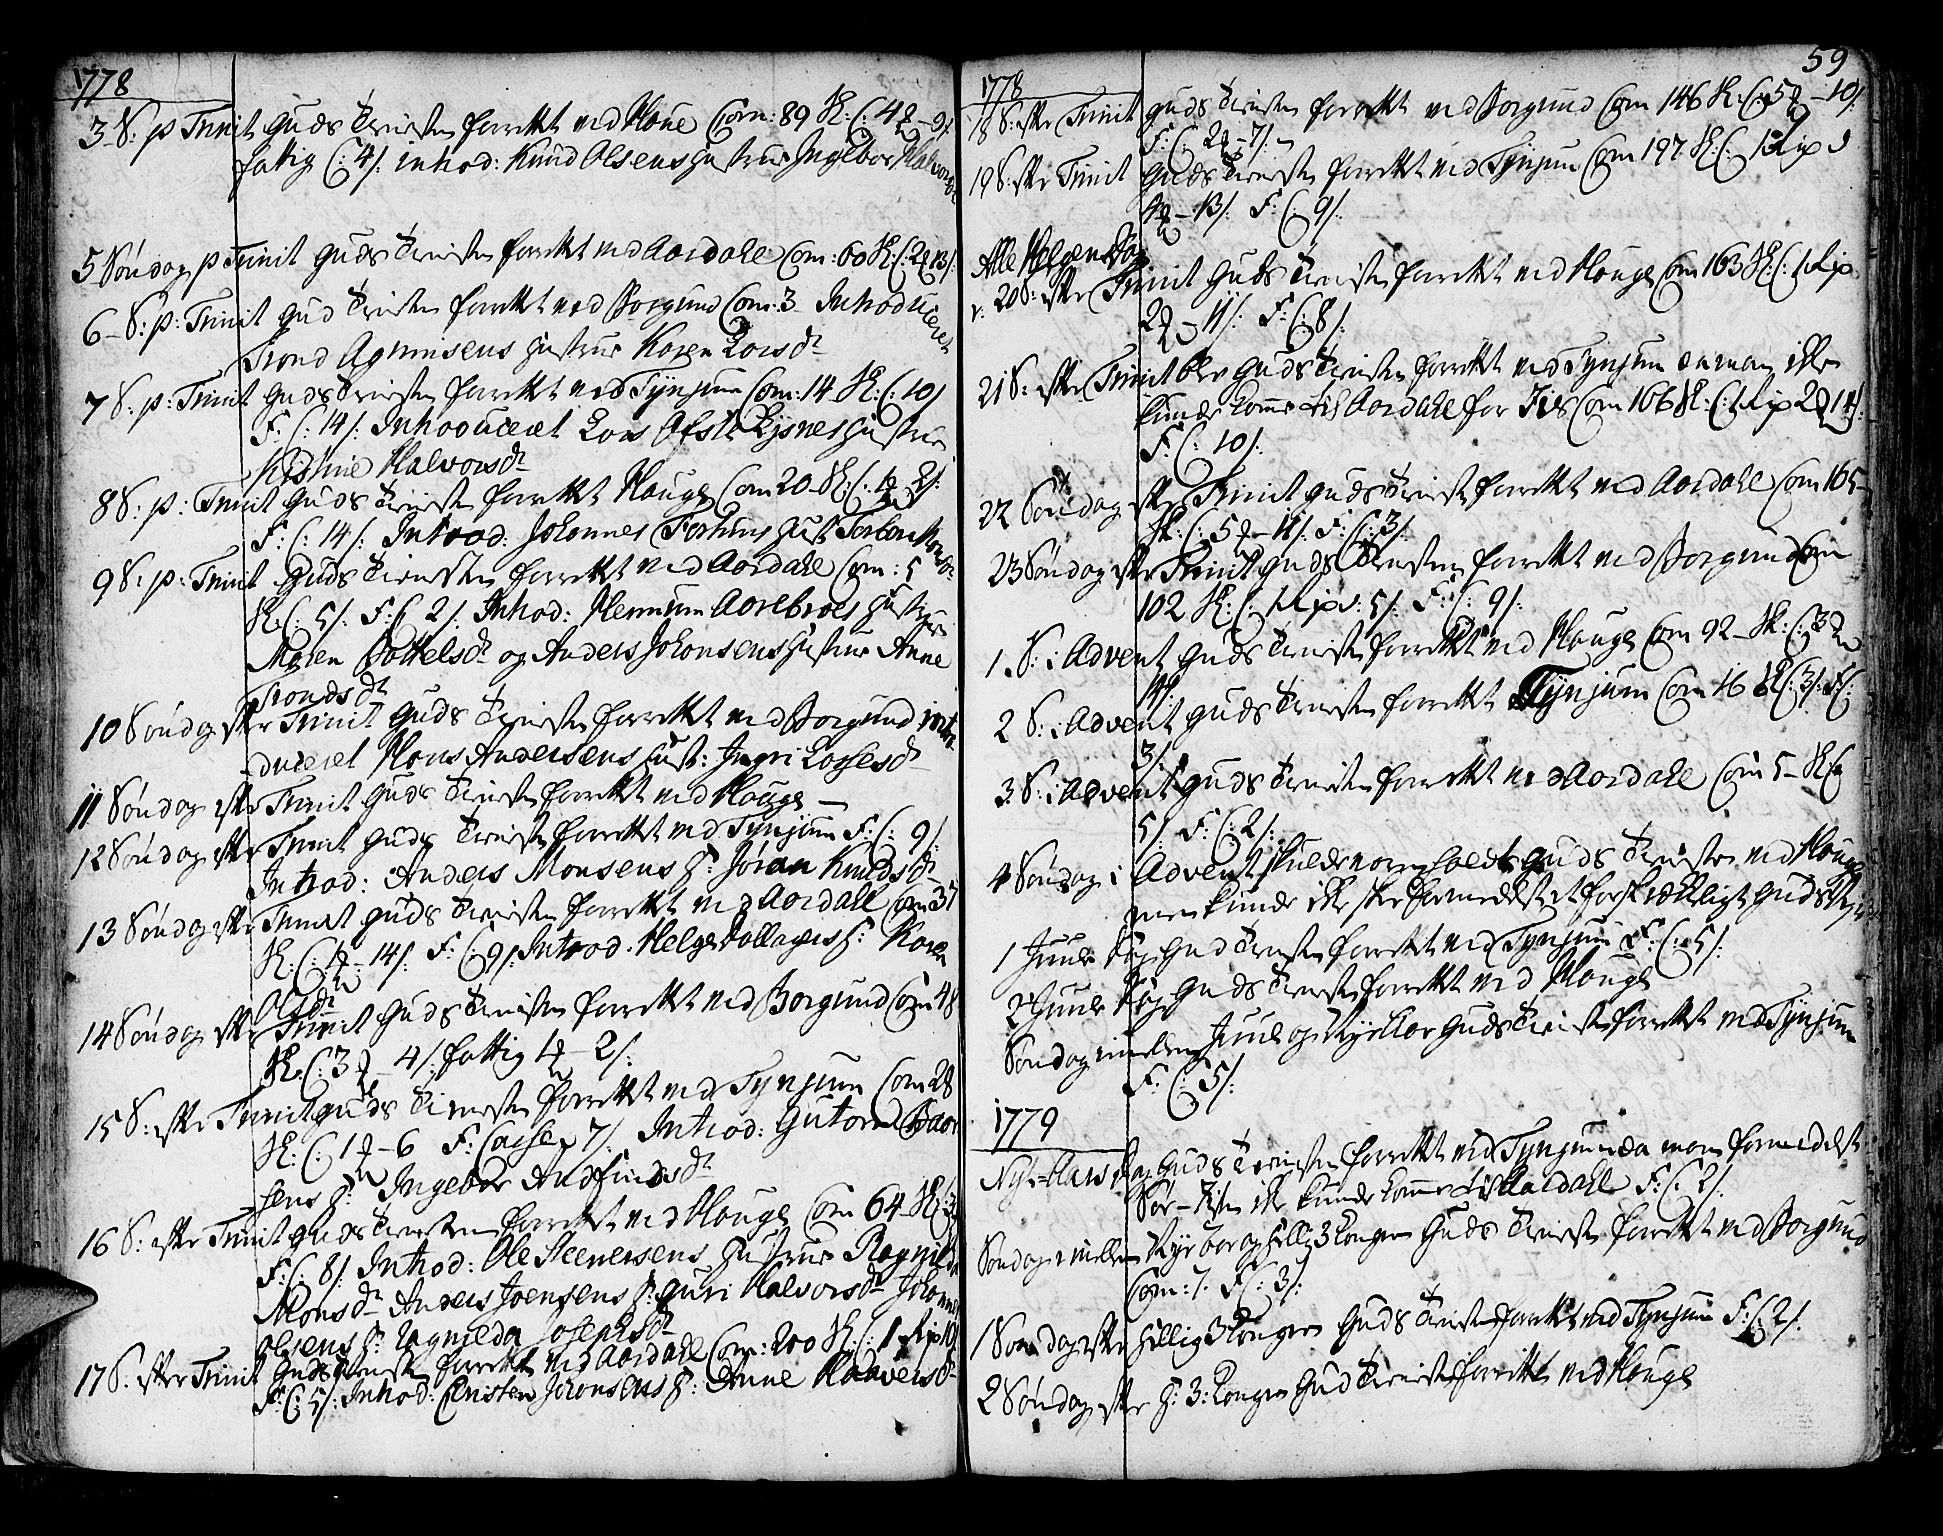 1778
3 S: p Trinit Guds Tienisten forrettet ved Houe Com: 89 K: C: 4
fattig C: 4/. introd: Knud Olsens Hustrue Ingebor Halvors
5 Søndag p Trinit Guds Tienisten forrettet ved Aardahl Com: 60 K: C: 2 13/.
6 S: p: Trinit Gud Tienisten forrettet ved Borgund Com: 3 Introduceret
Trond Hustrue Karen Larsdr
7 S: p: Trinit Guds Tienisten forrettet ved Tynjum Com: 14 K: C: 10/
F: C: 14/. Introduceret Lars Hustrue
Kistine Halvorsdr
8 S: p: Trinit Guds Tienisten forrettet Houge Com 20 K: C: 1 - 2/.
F: C: 14/. Introd: Johannes Hust
9 S: p: Trinit Guds Tienisten forrettet ved Aardahl Com: 5
K: C: 5/. F: C 2/. Introd: Hermum Hustrue
Maren Bottelsdr og Anders Johansens Hustrue Anne
Trondsdr
10 Søndag efter Trinit Guds Tienisten forrettet ved Borgund intro
duceret Hans Andersens Hust: Ingri
11 Søndag efter Trinit Guds Tienisten forrettet ved Houge
12 Søndag efter Trinit Guds Tienisten forrettet ved Tynjum F: C: 9/.
Introd: Anders Monsens H: Jøran Knudsdr
13 Søndag efter Trinit Guds Tienisten forrettet ved Aardahl Com 37
K: C: 1 - 14/. F: C: 9/. Introd: Helge H: Karen
Olsdr
14 Søndag efter Trinit Guds Tienisten forrettet ved Borgund Com 48
K: C: 3 - 4/. fattig 1 - 2/.
15 S: efter Trinit Guds Tienisten forrettet ved Tynjum Com 28
K: C: 1 - 6 F: Casse 7/. Introd: Gutorm Baar
sens H: Ingebor Andfindsdr
16 S: efter Trinit Guds Tienisten forrettet ved Houge Com 64 K: 3
F: C: 8/. Introd: Ole Steenersens Hustrue Ragnilda
Monsdr Anders Joensens H: Guri Halvorsdr Johannes
Olsens H: Ragnilda Josephsdr
17 S: efter Trinit Guds Tienisten forrettet ved Aardahl Com: 200 K: C: 1 Rix 10/
F: C: 5/. Introd: Christen Joronsens H: Anne Halvorsdr
59
1778
18 S: efter Trinit Guds Tienisten forrettet ved Borgund Com 146 K: C: 5 - 10/.
F: C 2 - 7/.
19 S: efter Trinit Guds Tienisten forrettet ved Tynjum Com 197 K: C: 1 Rixd
4 - 13/. F: C: 9/.
Alle Helgens Dag
v: 20 S: efter Trinit Guds Tienisten forrettet ved Houge Com 163 K: C: 1 Rix
2 - 11/. F: C: 8/.
21 S: efter Trinit blev Guds Tienisten forrettet ved Tynjum da man ikke
kunde komme til Aardahl for Iis Com 166 K: C: 1 Rix 2 14/.
F: C: 10/.
22 Søndag efter Trinit Guds Tienisten forrettet ved Aardahl Com 165
K: C: 5 - 11/. F: C: 3/.
23 Søndag efter Trinit Guds Tienisten forrettet ved Borgund Com
102 K: C: 1 Rixd: 5/. F: C: 9/.
1. S: i Advent Guds Tienisten forrettet ved Houge Com 92 K: C: 3
14/.
2 S: i Advent Guds Tienisten forrettet Tynjum Com 16 K: C: 3/. F: C:
3/.
3 S: i Advent Guds Tienisten forrettet ved Aardahl Com 5 K: C
5/. F: C: 2/.
4 Søndag i Advent skulde været holdt Guds Tienisten ved Houge
men kunde ikke skee formedelst et forskrækkeligt Guds
1 Juule Dag Gud Tienisten forrettet ved Tynjum F: C: 5/.
2 Juule Dag Guds Tienisten forrettet ved Houge
Søndag imellem Juul og Nyt Aar Guds Tienisten forrettet ved Tynjum
F: C: 5/.
1779
Nyt-Aars Dag Guds Tienisten forrettet ved Tynjum da man formedelst
Sør-Isen ikke kunde komme til Aardahl F: C: 2/.
Søndag imellem Nyt aar og hellig 3 Konger Guds Tienisten forrettet ved Borgund
Com: 7. F: C: 3/.
1 Søndag efter Hellig 3 Konger Guds Tienisten forrettet ved Tynjum F: C: 2/.
2 Søndag efter H: 3: Konger Gud Tienisten forrettet ved Houge